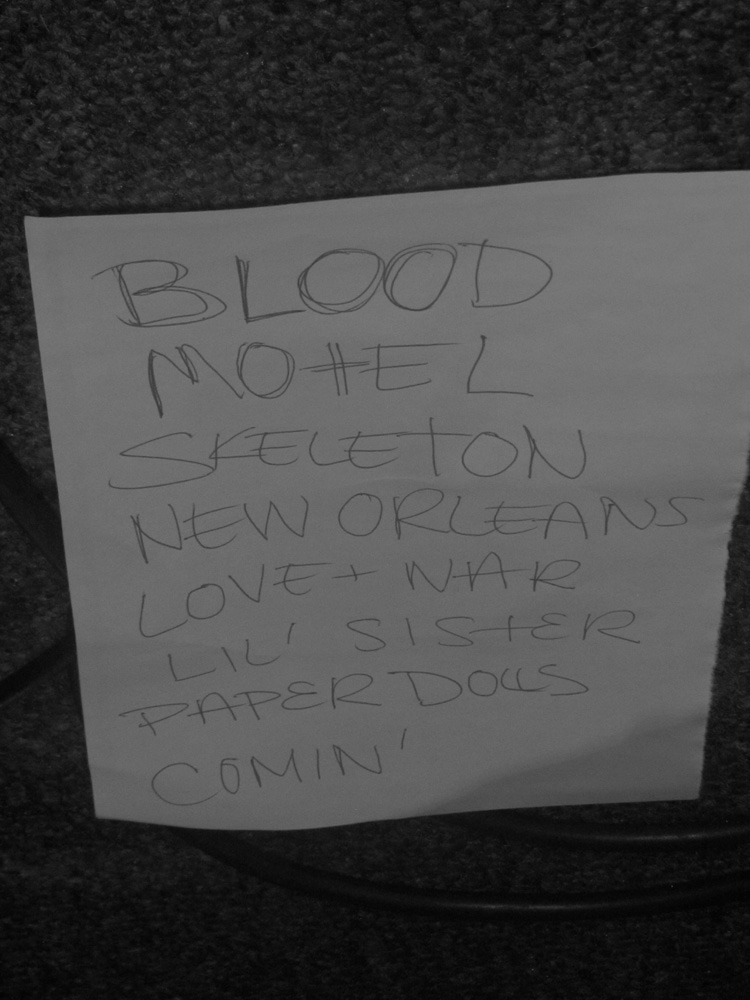 BLOOD
MOTEL
SKELETON
NEW ORLEANS
LOVE + WAR
LIL' SISTER
PAPER DOLLS
COMIN'